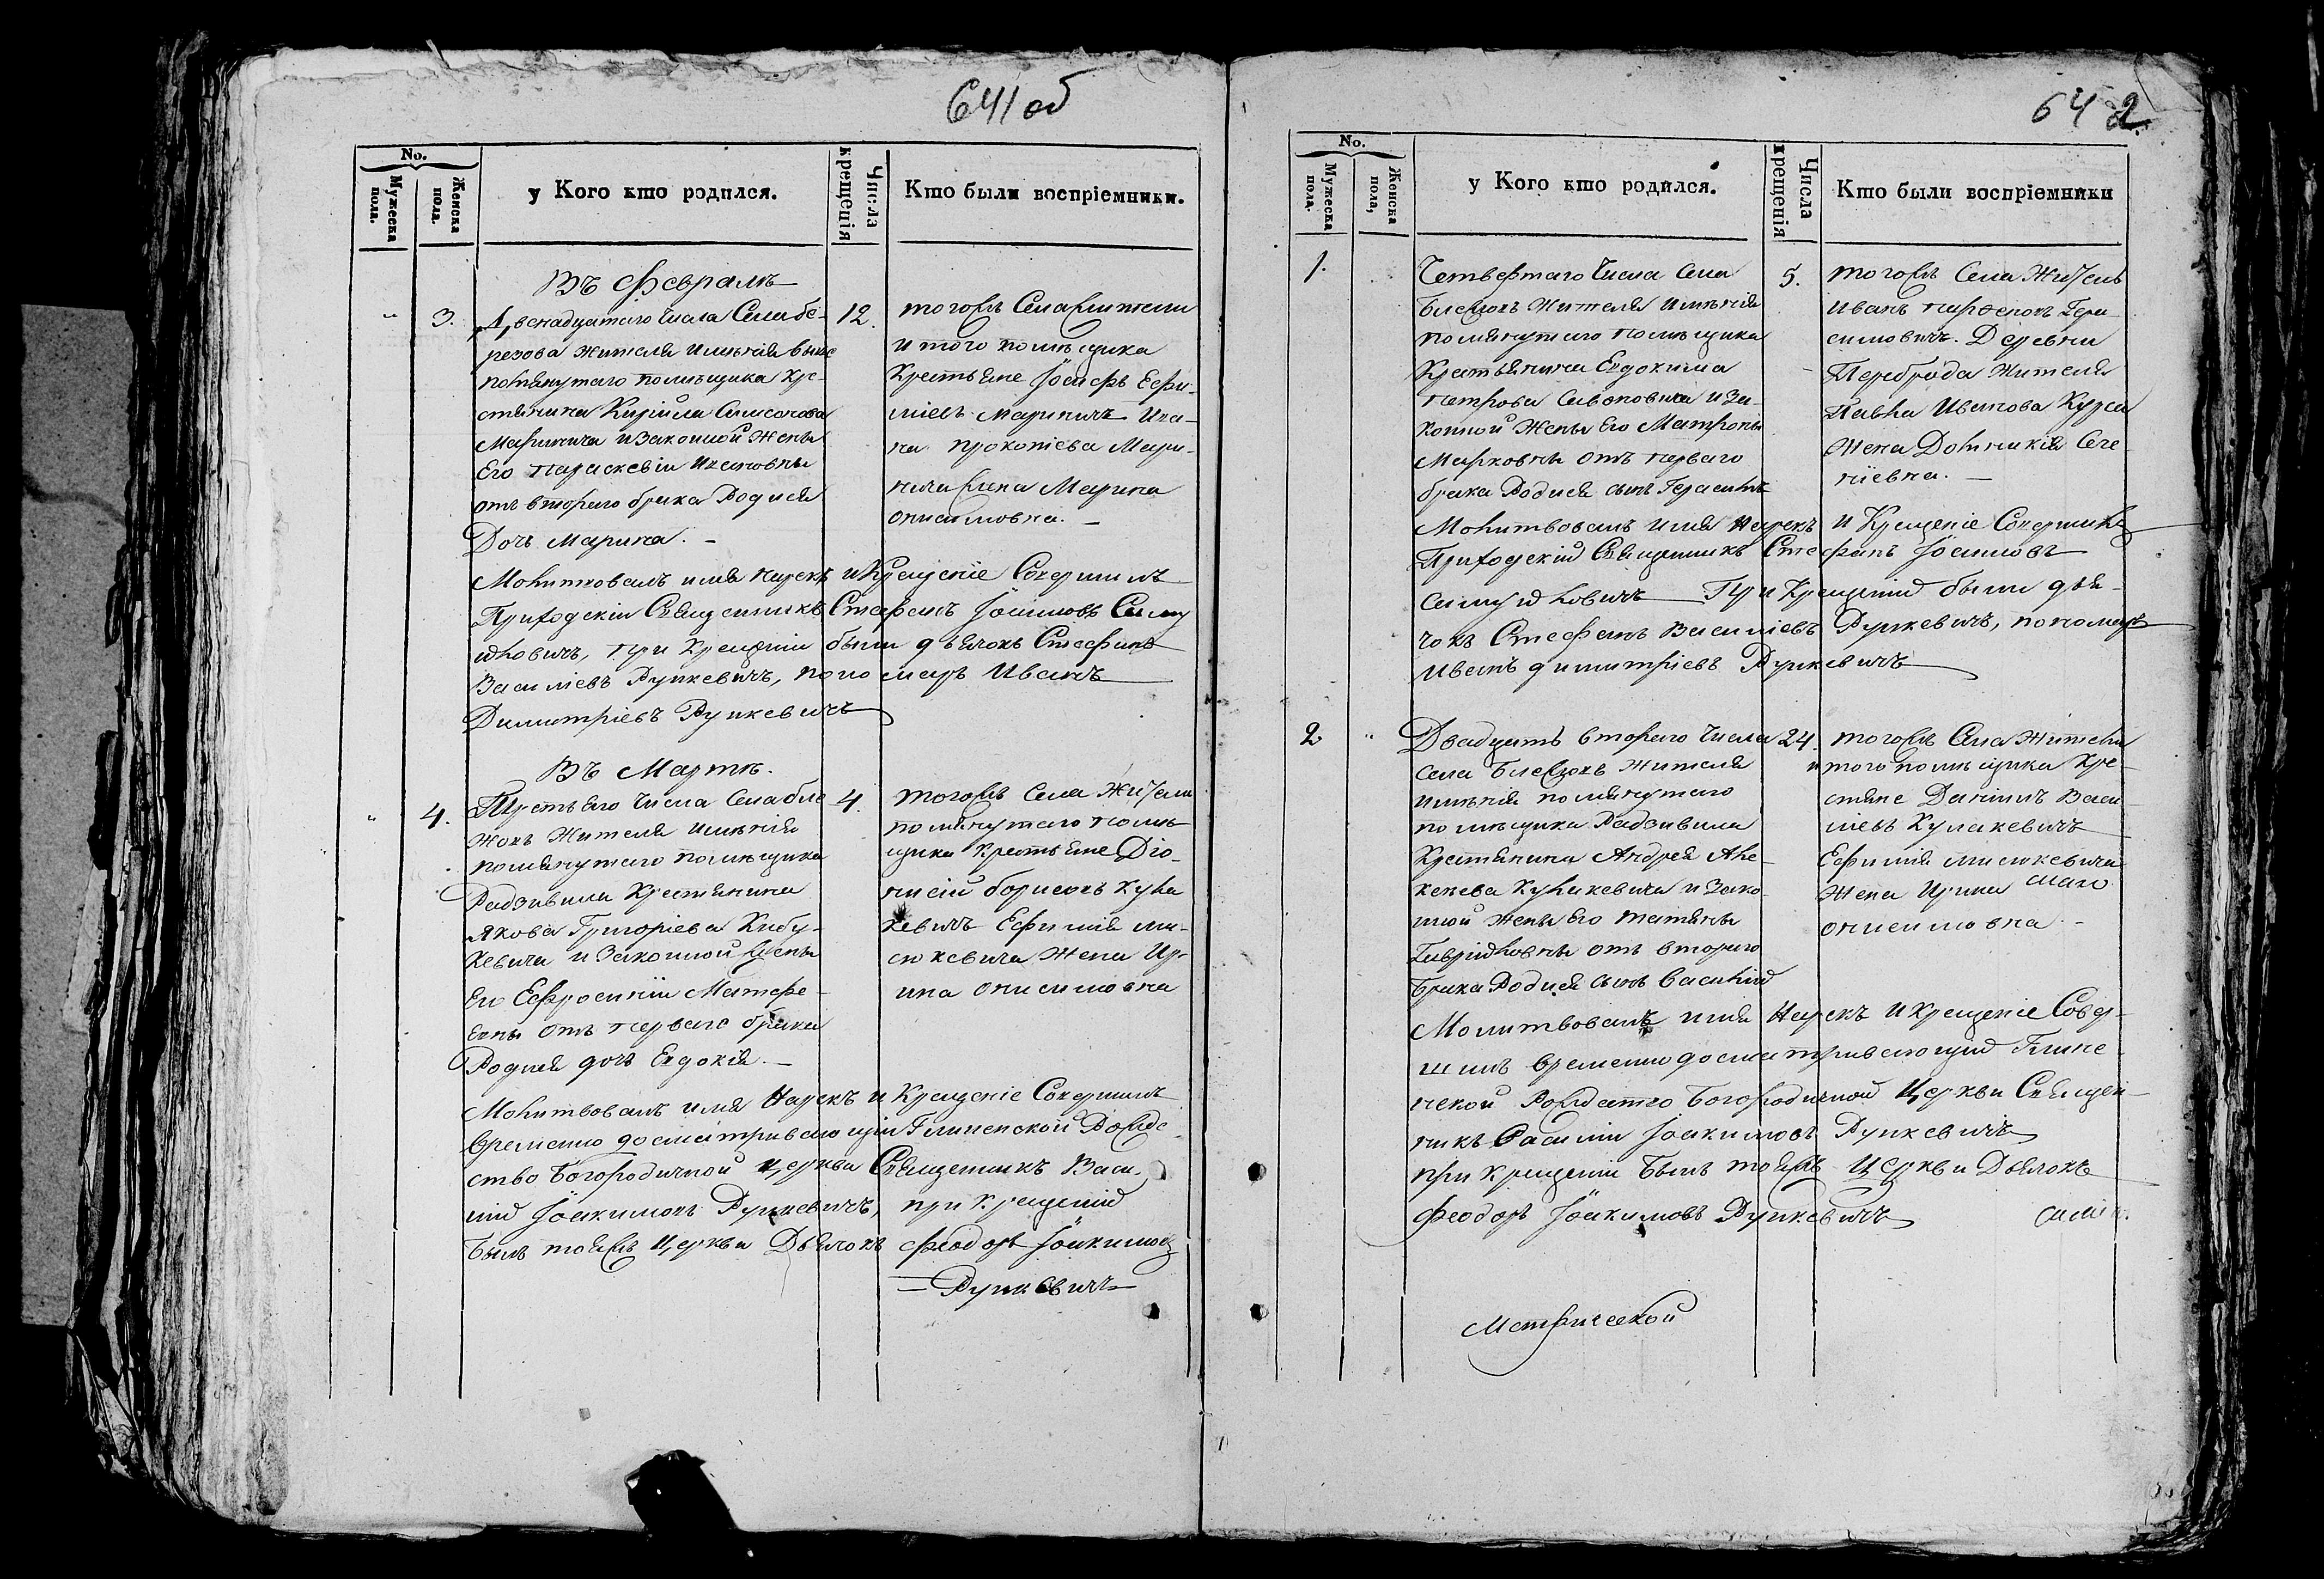 641 об
No.
Мужеска пола.
Женска пола.
у Кого кто родился.
Числа крещенiя
Кто были воспрiемники.
Въ Февралѣ
3.
Двенадцатаго Числа Села бе-
резова жителя имѣнiя выше
помянутаго помѣщика Кре-
стянина Кирiила Самсонова
Маринича и Законной жены
Его параскевiи Ивановны
отъ втораго брака Родися
Дочь Марина. -
12.
тогожъ Села жители
и того помѣщика
Крестьяне Iосифъ Ефи-
мiевъ Мариничъ Ива-
на прокопiева Мари-
нича жена Марина
онисимовна. -
Молитвовалъ имя нарекъ и Крещенiе Совершилъ
Приходскiи Священникъ Стефанъ Iоанновъ Саму
йловичъ, при Крещенiи были дьячокъ Стефанъ
Василiевъ Рункевичъ, пономарь Иванъ
Димитрiевъ Рункевичъ
Въ Мартѣ.
4.
Третьяго Числа Села бле
жовъ Жителя имѣнiя
помянутаго помѣщика
Радзивила Крестянина
Якова Григорiева Кибу-
кевича и Законной Жены
Его Ефросинiи Матфе-
евны отъ перваго брака
Родися дочь Евдокiя. -
4.
тогожъ Села Жители
помянутаго помѣ
щика Крестьяне Дiо-
нисiй борисовъ Кула
кевичъ Ефимiя ми-
сюкевича жена Ир-
ина онисимовна
Молитвовалъ имя Нарекъ и Крещенiе Совершилъ
временно досматривающiи Глиненской Рожде
ство Богородичной церкви Священникъ Васи-
лiй Iоакимовъ Рункевичъ, при Крещенiй
былъ тояжъ Церкви Дьячокъ Феодоръ Iоакимовъ
Рункевичъ
642
No.
Мужеска пола.
Женска пола,
у Кого кто родился.
Числа крещенiя
Кто были воспрiемники
1.
Четвертаго Числа Села
Блежовъ Жителя имѣнiя
помянутаго помѣщика
Крестьянина Евдокима
Петрова Савоновича и За-
конной Жены Его Матроны
Марковны отъ перваго
брака Родися сынъ Герасимъ
5.
тогожъ Села Житель
Иванъ парфеновъ Гера-
симовичъ. Деревни
Переброда жителя
Павла Иванова Курса
жена Домникiя Сге-
нiевна. -
Молитвовалъ имя Нарекъ и Крещенiе Совершилъ
Приходскiй Священникъ Стефанъ Iоанновъ
Самуйловичъ При Крещенiй были дья-
чокъ Стефанъ Василiевъ Рункевичъ, пономарь
Иванъ димитрiевъ Рункевичъ
2
Двадцать втораго Числа
села Блежовъ жителя
имѣнiя помянутаго
помѣщика Радзивила
Крестянина Андрея Але-
ксеева Кулакевича и Зако-
нной жены Его татяны
Гаврiйловны отъ втораго
брака Родися сынъ Василiй
24.
тогожъ Села Жители
и того помѣщика Кре-
стяне Данiилъ Васи-
лiевъ Кулакевичъ
Ефимiя мисюкевича
жена Ирина
онисимовна -
Молитвовалъ имя Нарекъ и крещенiе Совер-
шилъ временно досматривающiй Глине-
нской Рождество Богородичной Церкви Священ-
никъ Василiи Iоакимовъ Рункевичъ
при крещенiи былъ тояжъ Церкви Дьячокъ
Феодоръ Iоакимовъ Рункевичъ
Метрической